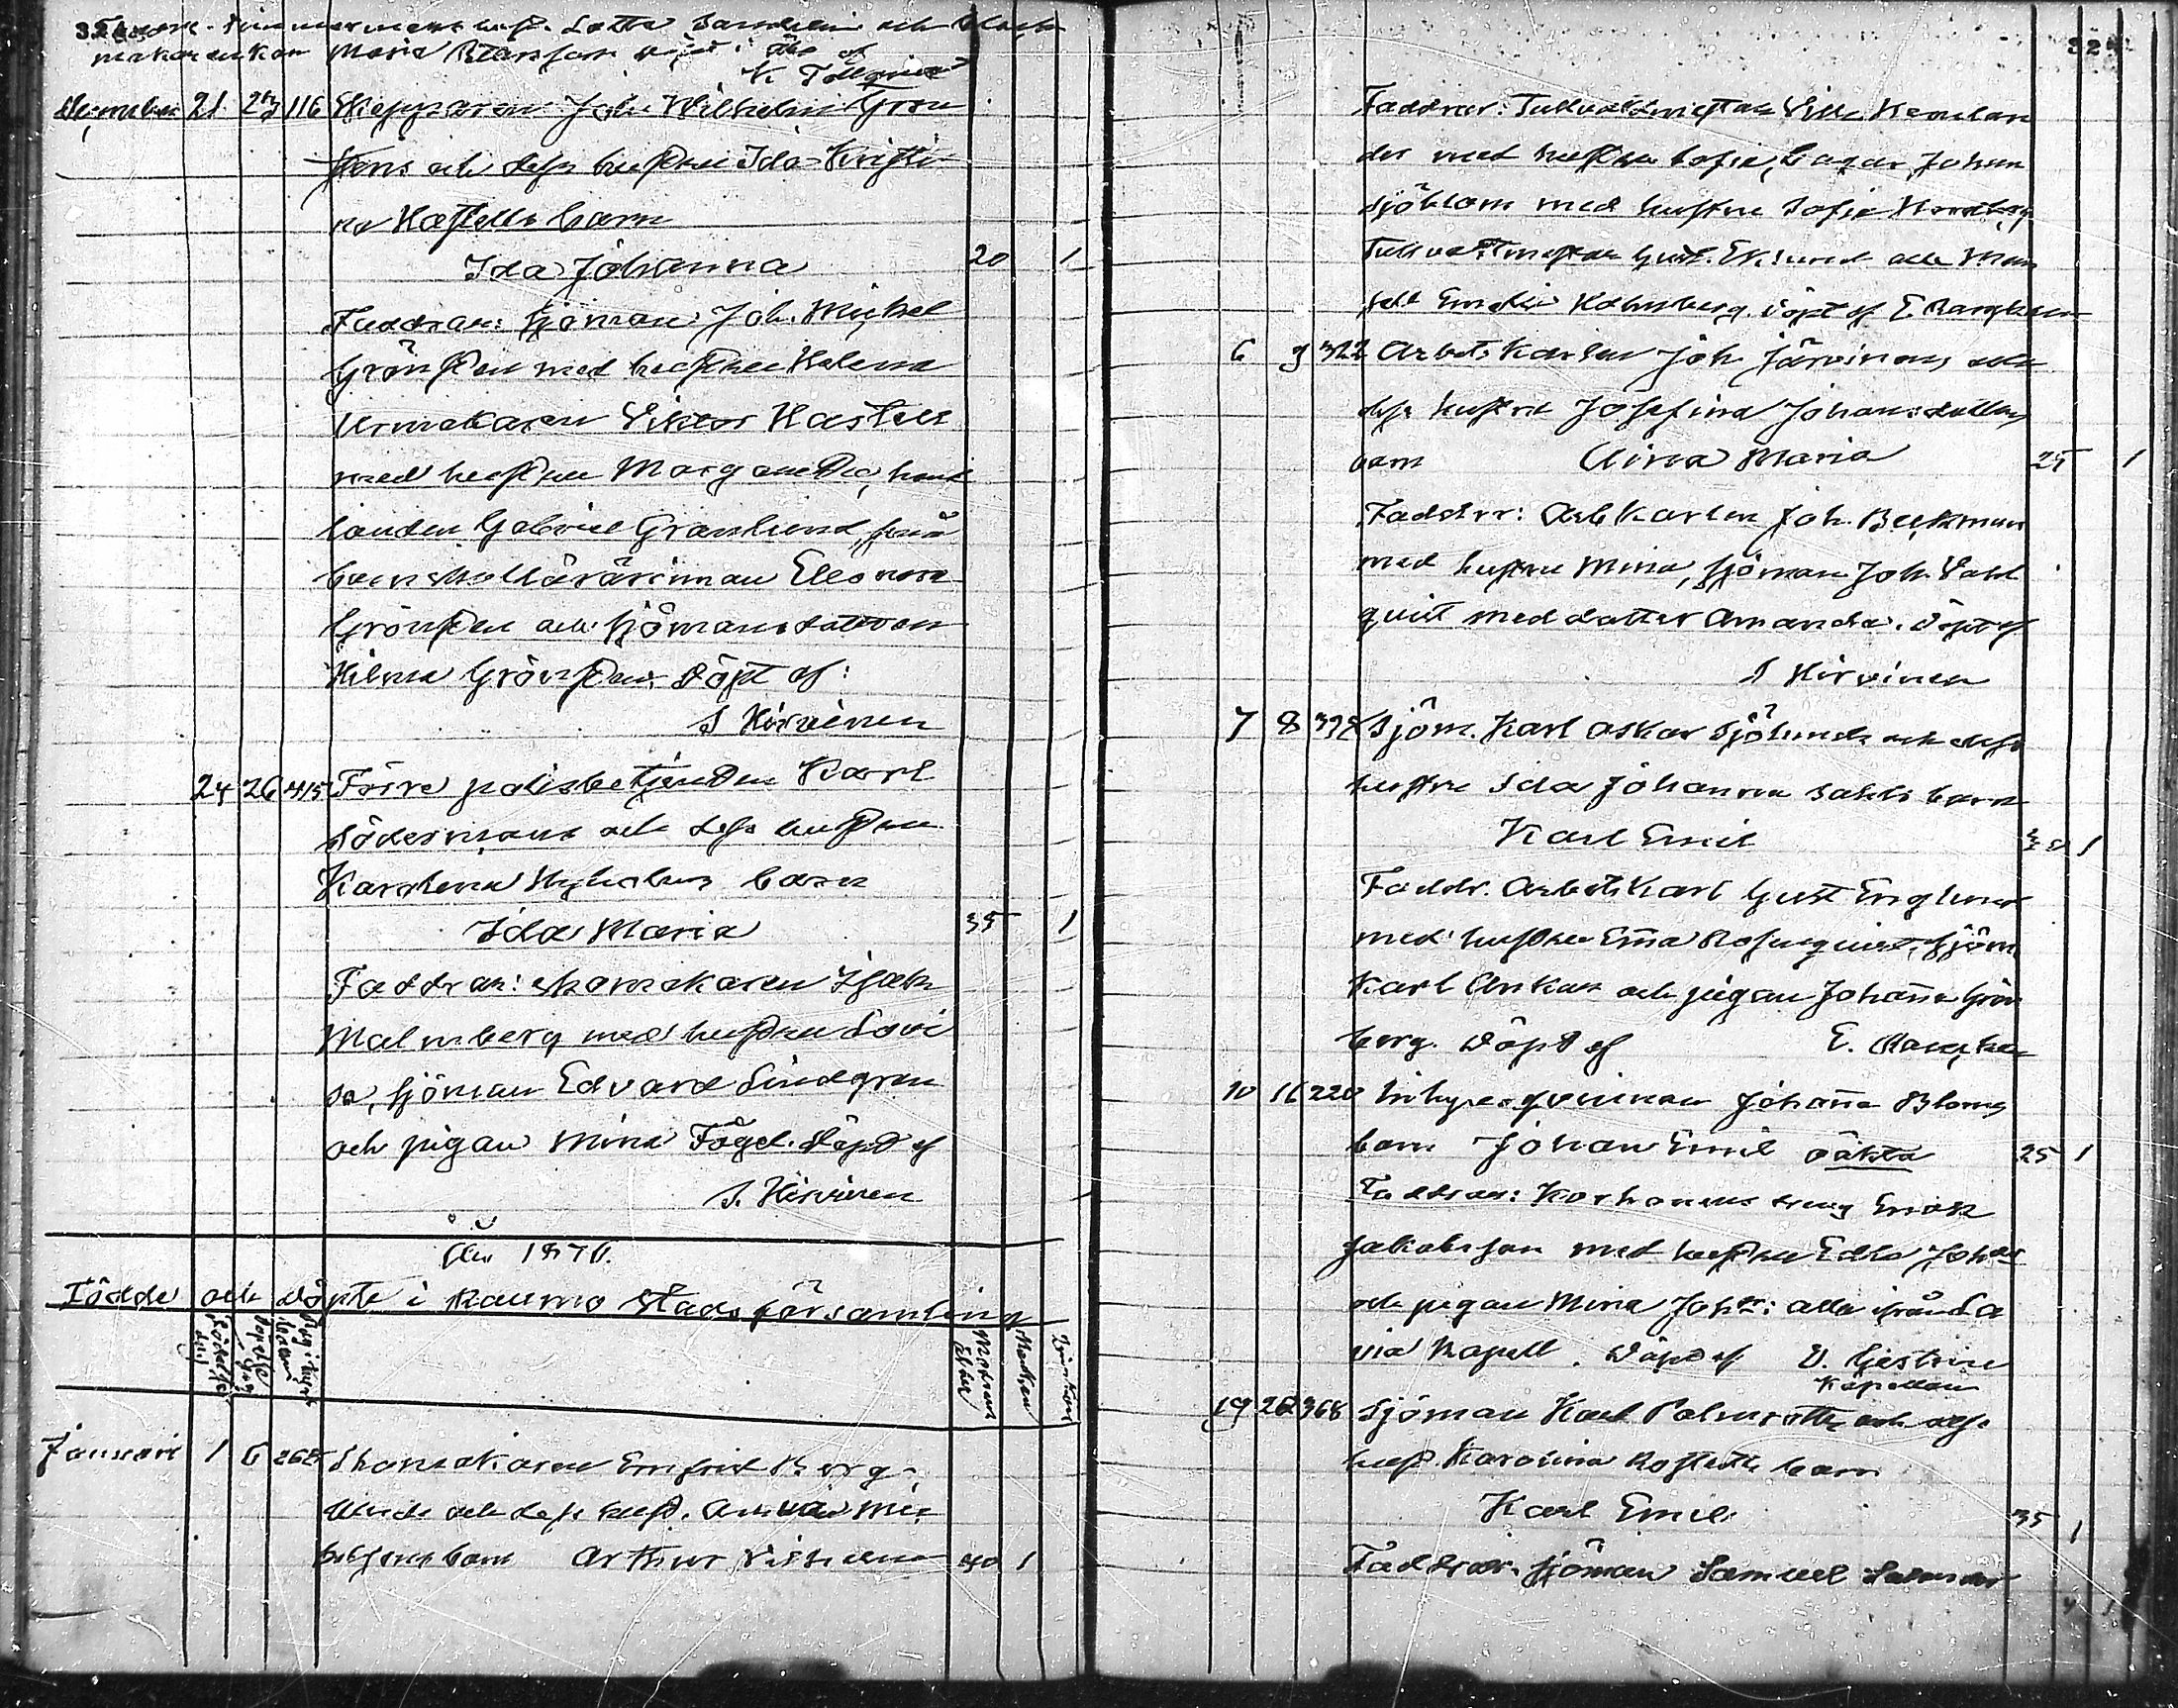 Timmermans hust. Lotta och
makarenkan Maria
K Tollqvist
December 21 27 116 Skepparen Joh. Wilhelm Grön
stens och dess hustru Ida Kristi
na Hastells barn
Ida Johanna 20 1
Faddrar: sjöman Joh. Mickel
Grönsten med hustru Helena
Urmakaren Viktor Hastell
med hustru Margaretha, hand
landen Gabriel Granlund, små
barnskollärarinnan Eleonora
Grönsten och sjömansdottren
Hilma Grönsten. Döpt af:
I Hirvinen
24 26 415 Förre polisbetjenten Karl
Södermans och dess hustru
Karolina barn
Ida Maria 35 1
Faddrar: skomakaren Isak
Malmberg med hustru Lovi
sa, sjöman Edvard Lindgren
och pigan Mina Fogel. Döpt af
I. Hirvinen
År 1876.
Födde och döpte i Raumo Stads församling
Januari 1 6 262 Skomakaren Emfrid Berg
lunds och dess hust. Amanda Mic
kelssons barn Arthur Vilhelm 40 1
Faddrar: Tullvaktmestar Ville Kemlan
der med hustru Sofia, Johan
Sjöblom med hustru Sofia Nordberg
Tullvaktmestar Gust. Eklund och Mam
sell Emelie Holmberg. Döpt af E. Rangken
6 9 322 Arbets Karlen Joh Järvinens och
dess hustru Josefina Johansdotters
barn Aina Maria 25 1
Faddrar: Arb Karlen Joh. Beckman
med hustru Mina, sjöman Joh. Dahl
quist med dotter Amanda. Döpt af
I Hirvinen
7 8 378 Sjöm. Karl Oskar Sjölunds och dess
hustru Ida Johanna Sahls barn
Karl Emil 30 1
Faddr. Arbets Karl Gust Englund
med hustru Em̄a Rosenquist, sjöm
Karl Ankar och pigan Johan̄a Grön
berg. Döpt af E. Rangken
10 16 220 Inhyses qvinnan Johan̄a Bloms
barn Johan Emil oäkta 25 1
Faddrar: Korhonens dräng Enok
Jakobsson med hustru Edla Johdr
och pigan Mina Johdr: alla ifrån La
via Kapell. Döpt af V. Gestrin
Kapellan
19 26 368 Sjöman Karl Palmroths och dess
hust. Karolina Rostedts barn
Karl Emil 35 1
Faddrar. sjöman Samuel